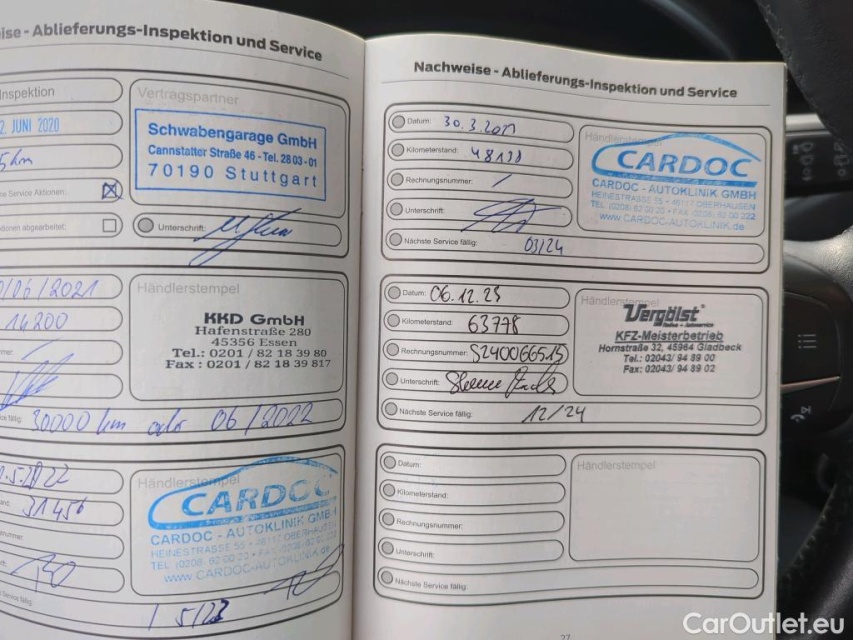 ise - Ablieferungs-Inspektion und Service
Inspektion
Vertragspartner
2. JUNI 2020
Schwabengarage GmbH
Cannstatter Straße 46 - Tel. 28 03 - 01
70190 Stuttgart
5 km
ne Service Aktionen:
ionen abgearbeitet:
Unterschrift:
/06/2021
14200
Händlerstempel
KKD GmbH
Hafenstraße 280
45356 Essen
Tel.: 0201 / 82 18 39 80
Fax : 0201 / 82 18 39 817
fällig:
30000 km oder 06/2022
.5.2022
31456
Händlerstempel
CARDOC
CARDOC - AUTOKLINIK GMBH
HEINESTRASSE 55 • 46117 OBERHAUSEN
www.CARDOC-AUTOKLINIK.de
Service fällig:
Nachweise - Ablieferungs-Inspektion und Service
Datum:
Kilometerstand:
Rechnungsnummer:
Unterschrift:
Nächste Service fällig:
03/24
Händlerstempel
CARDOC
CARDOC - AUTOKLINIK GMBH
HEINESTRASSE 55 • 46117 OBERHAUSEN
www.CARDOC-AUTOKLINIK.de
Datum: 06.12.23
Kilometerstand: 63778
Rechnungsnummer:
Unterschrift:
Nächste Service fällig: 12/24
Händlerstempel
Vergölst
Reifen + Autoservice
KFZ-Meisterbetrieb
Hornstraße 32, 45964 Gladbeck
Tel.: 02043/ 94 89 00
Fax: 02043/ 94 89 02
Datum:
Kilometerstand:
Rechnungsnummer:
Unterschrift:
Nächste Service fällig:
Händlerstempel
27
CarOutlet.eu